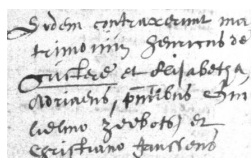 Eydem contraxerunt ma
trimonium Henricus de
et Elisabetha
Adriaens, pntibus Gui
lielmo Zeebots et
Christiano Janssens